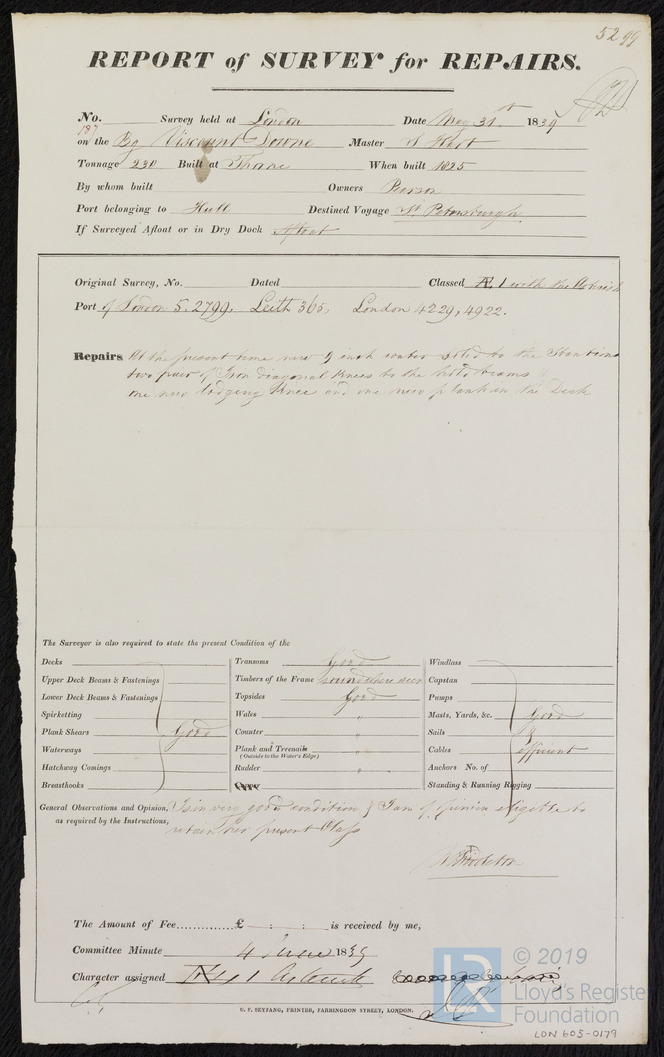 5299
REPORT of SURVEY for REPAIRS.
No. Survey held at London Date May 31st 1839
187
on the Bg Viscount Downe Master S Hart
Tonnage 230 Built at Thorne When built 1825
By whom built Owners Pierson
Port belonging to Hull Destined Voyage St Petersburgh
If Surveyed Afloat or in Dry Dock Afloat
Original Survey, No. Dated Classed Æ 1 with the Asterisk
Port of London 5.2799, Leith 365, London 4229, 4922.
Repairs At the present time new 9 inch bolted to the Stanchions
two pair of Iron diagonal Knees to the hold beams
one new lodging Knee and one new plank in the Deck
The Surveyor is also required to state the present Condition of the
Decks
Upper Deck Beams & Fastenings
Lower Deck Beams & Fastenings
Spirketting
Plank Shears Good
Waterways
Hatchway Comings
Breasthooks
Transoms Good
Timbers of the Frame sound where seen
Topsides Good
Wales "
Counter "
Plank and Treenails "
(Outside to the Water's Edge)
Rudder "
Windlass
Capstan
Pumps
Masts, Yards, &c. Good
Sails &
Cables efficient
Anchors No. of
Standing & Running Rigging
General Observations and Opinion, Is in very good condition & I am of Opinion eligible to
as required by the Instructions, retain her present Class
The Amount of Fee............... £ : : is received by me,
Committee Minute 4 June 1839
Character assigned
G. F. SEYFANG, PRINTER, FARRINGDON STREET, LONDON.
LR
© 2019
Lloyd's Register
Foundation
LON 605-0179